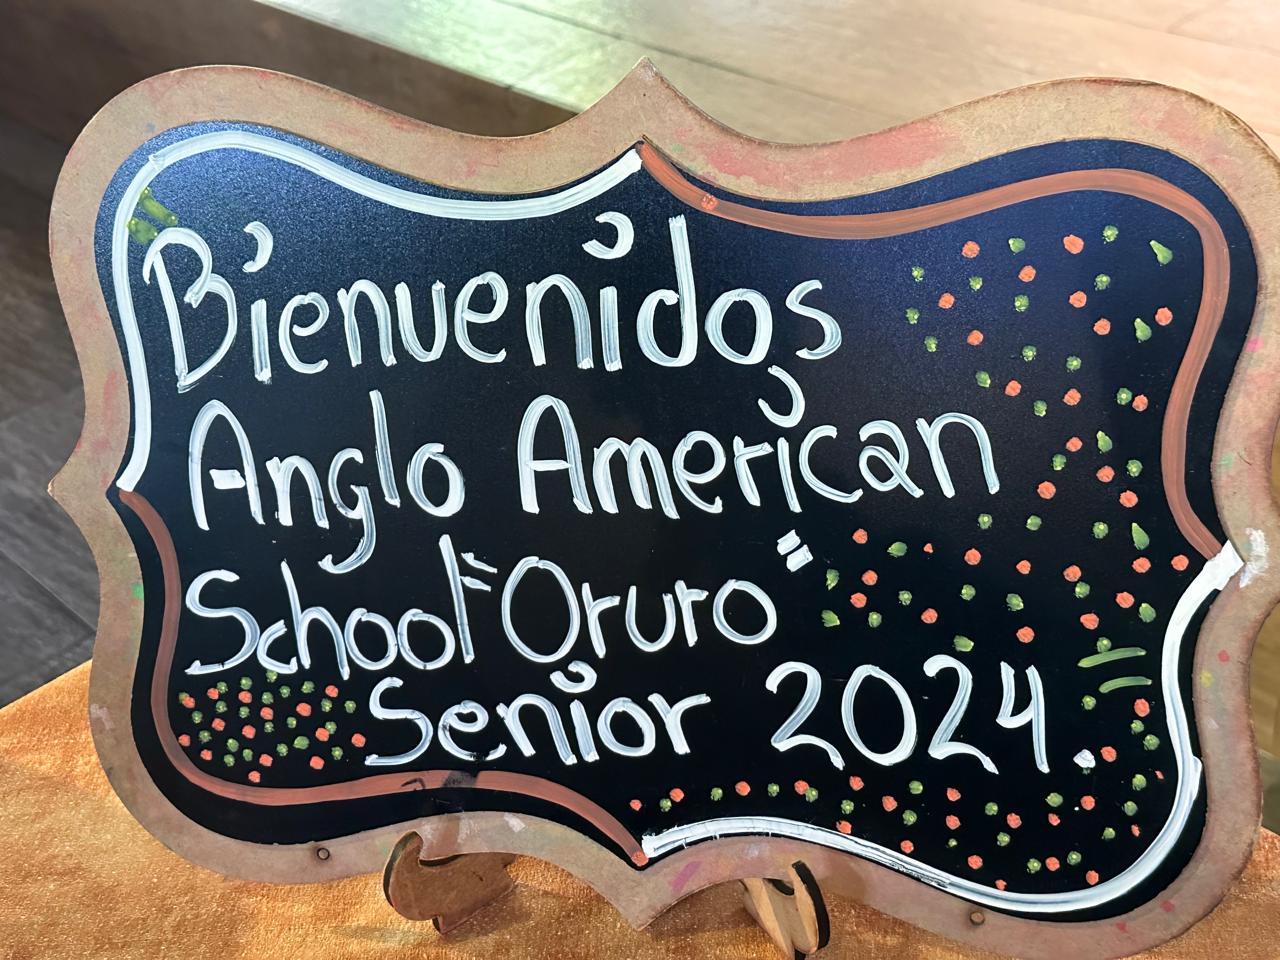 Bienvenidos
Anglo American
School "Oruro"
Senior 2024.